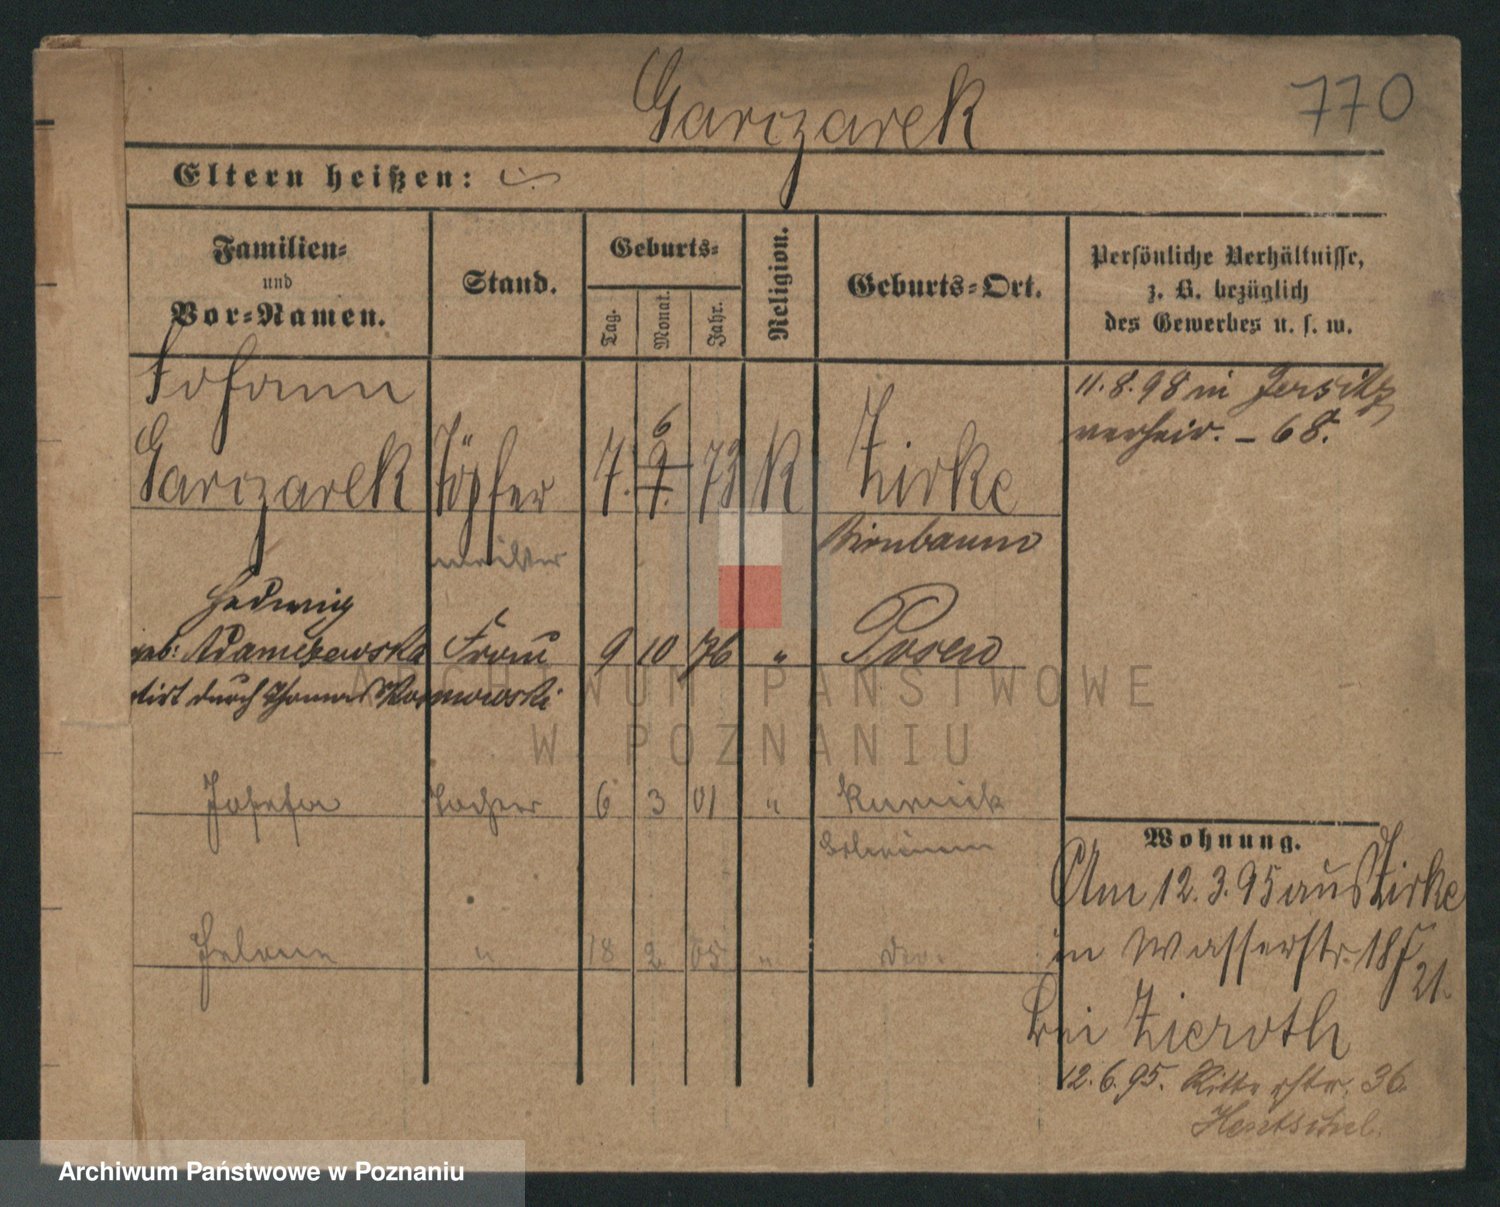 Garczarek
770
Eltern heißen:
Familien- und Vor-Namen.
Stand.
Geburts-
Tag.
Monat.
Jahr.
Religion.
Geburts-Ort.
Persönliche Verhältnisse,
z. B. bezüglich
des Gewerbes u. s. w.
Johann
Garczarek Töpfer 7. 6 73 K Zirke
meister Birnbaum
11.8.98 in Jersitz
verheir. - 68.
Hedwig
geb: Adamczewska Frau 9 10 76 " Posen
durch Thomas
Josefa Tochter 6 3 01 " Kurnick
Schrimm
Helene " 18 2 05 " do.
Wohnung.
Am 12.3.95 aus Zirke
in Wasserstr. 18
21.
bei Zieroth
12.6.95. Ritterstr. 36.
Hentschel.
ARCHIWUM PAŃSTWOWE
W POZNANIU
Archiwum Państwowe w Poznaniu